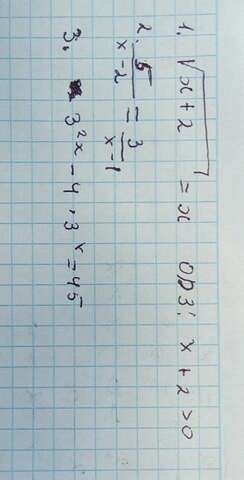 1. √x+2 = x ОДЗ: x+2>0
2. 5/x-2 = 3/x-1
3. 3²ˣ - 4 · 3ˣ = 45